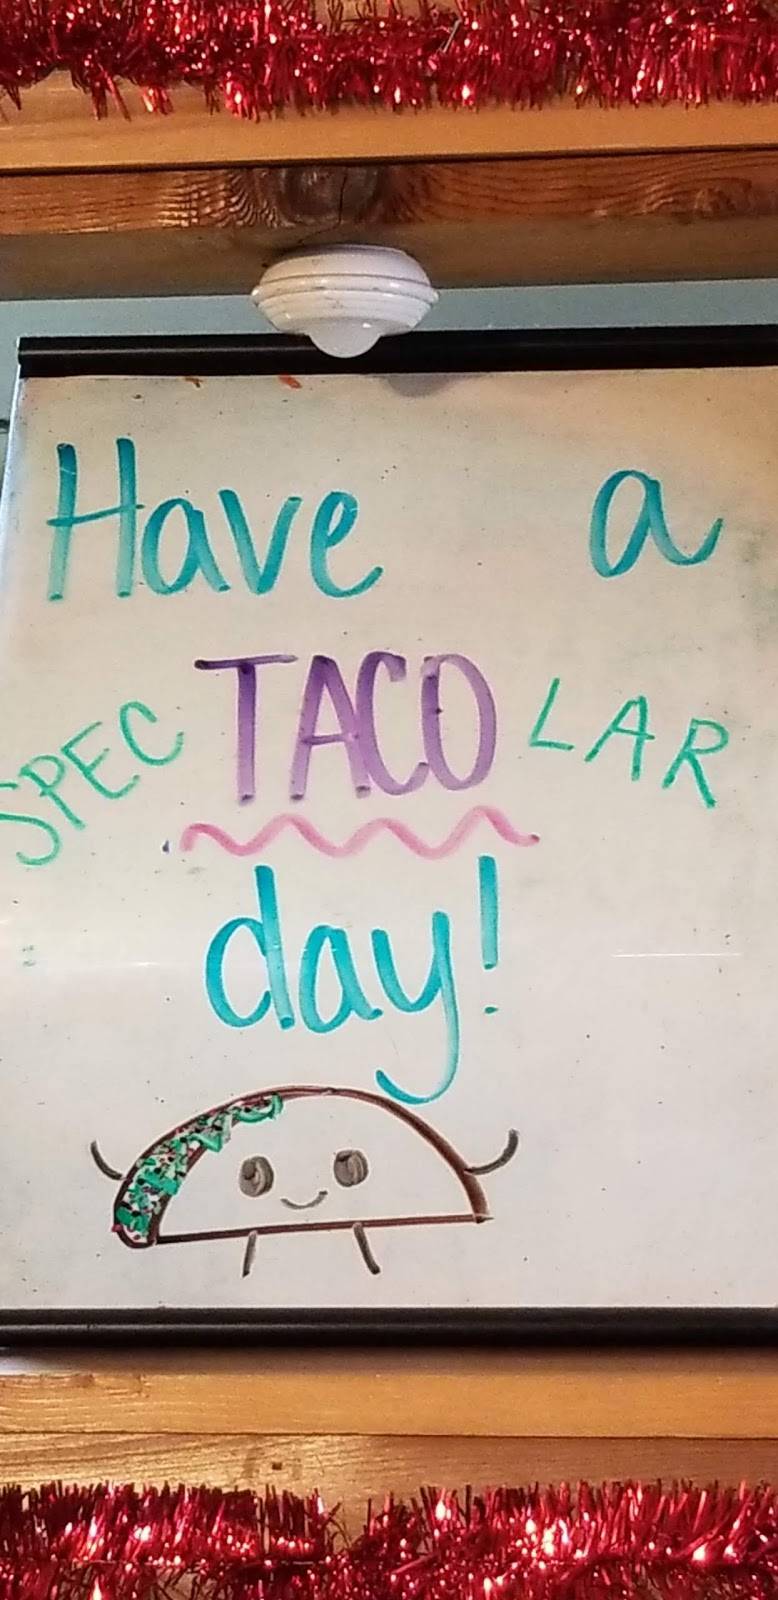 Have a
SPECTACOLAR
day!